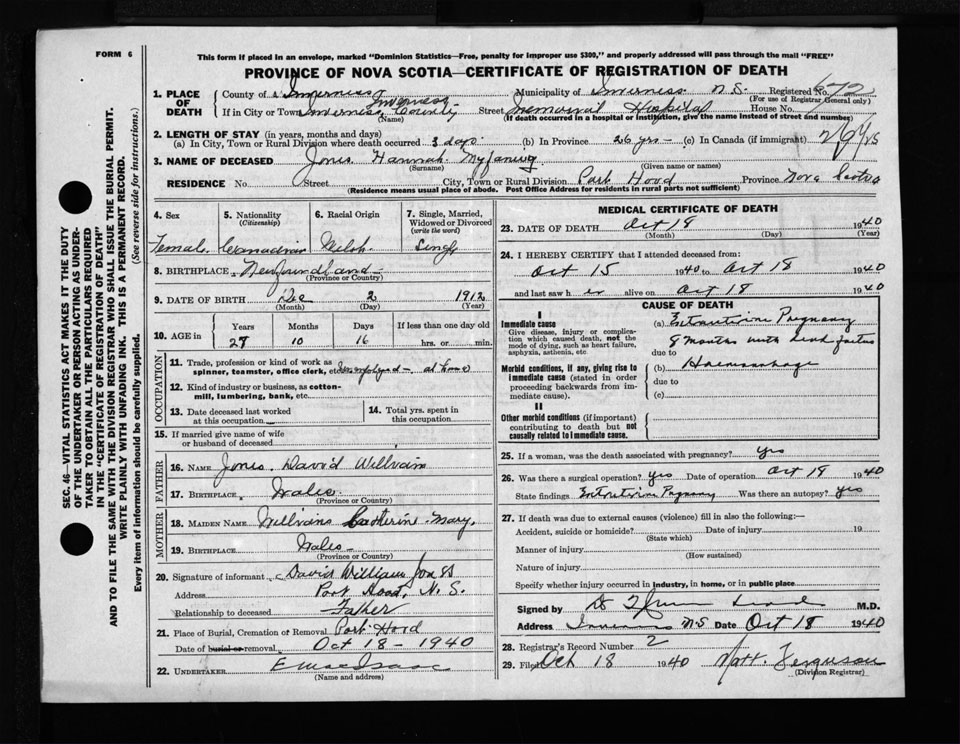 FORM 6
This form if placed in an envelope, marked "Dominion Statistics—Free, penalty for improper use $300," and properly addressed will pass through the mail "FREE"
PROVINCE OF NOVA SCOTIA—CERTIFICATE OF REGISTRATION OF DEATH
1. PLACE OF DEATH County of Inverness Municipality of Inverness N.S. Registered No. 72
(For use of Registrar General only)
If in City or Town Inverness, Inverness County Street Memorial Hospital House No.
(Name) (If death occurred in a hospital or institution, give the name instead of street and number)
2. LENGTH OF STAY (in years, months and days)
(a) In City, Town or Rural Division where death occurred 3 days (b) In Province 26 yrs — (c) In Canada (if immigrant) 26 yrs
3. NAME OF DECEASED Jones Hannah
(Surname) (Given name or names)
RESIDENCE No. Street City, Town or Rural Division Port Hood Province Nova Scotia
(Residence means usual place of abode. Post Office Address for residents in rural parts not sufficient)
4. Sex 5. Nationality (Citizenship) 6. Racial Origin 7. Single, Married, Widowed or Divorced (write the word)
Female Canadian Welsh Single
8. BIRTHPLACE Newfoundland
(Province or Country)
9. DATE OF BIRTH Dec 2 1912
(Month) (Day) (Year)
10. AGE in Years Months Days If less than one day old
27 10 16 hrs. or min.
OCCUPATION
11. Trade, profession or kind of work as spinner, teamster, office clerk, etc. Unemployed — at home
12. Kind of industry or business, as cotton-mill, lumbering, bank, etc.
13. Date deceased last worked at this occupation
14. Total yrs. spent in this occupation
15. If married give name of wife or husband of deceased
FATHER
16. NAME Jones. David William
17. BIRTHPLACE Wales
(Province or Country)
MOTHER
18. MAIDEN NAME Catherine Mary
19. BIRTHPLACE Wales
(Province or Country)
20. Signature of informant David William Jones
Address Port Hood, N. S.
Relationship to deceased Father
21. Place of Burial, Cremation or Removal Port Hood
Date of burial or removal Oct 18 - 1940
22. UNDERTAKER E MacIsaac
(Name and address)
MEDICAL CERTIFICATE OF DEATH
23. DATE OF DEATH Oct 18 1940
(Month) (Day) (Year)
24. I HEREBY CERTIFY that I attended deceased from:
Oct 15 1940 to Oct 18 1940
and last saw her alive on Oct 18 1940
CAUSE OF DEATH
I
Immediate cause
Give disease, injury or complication which caused death, not the mode of dying, such as heart failure, asphyxia, asthenia, etc
(a) Pregnancy
8 months with dead foetus
due to
Morbid conditions, if any, giving rise to immediate cause (stated in order proceeding backwards from immediate cause).
(b) Haemorrhage
due to
(c)
II
Other morbid conditions (if important) contributing to death but not causally related to immediate cause.
25. If a woman, was the death associated with pregnancy? yes
26. Was there a surgical operation? yes Date of operation Oct 18 1940
State findings Pregnancy Was there an autopsy? yes
27. If death was due to external causes (violence) fill in also the following:—
Accident, suicide or homicide? Date of injury 19
(State which)
Manner of injury
(How sustained)
Nature of injury
Specify whether injury occurred in industry, in home, or in public place
Signed by M.D.
Address Inverness N.S Date Oct 18 1940
28. Registrar's Record Number 2
29. Filed Oct 18 1940 Matt. Ferguson
(Division Registrar)
SEC. 46—VITAL STATISTICS ACT MAKES IT THE DUTY
OF THE UNDERTAKER OR PERSON ACTING AS UNDER-
TAKER TO OBTAIN ALL THE PARTICULARS REQUIRED
IN THE "CERTIFICATE OF REGISTRATION OF DEATH"
AND TO FILE THE SAME WITH THE DIVISION REGISTRAR WHO SHALL ISSUE THE BURIAL PERMIT.
WRITE PLAINLY WITH UNFADING INK. THIS IS A PERMANENT RECORD.
Every item of information should be carefully supplied. (See reverse side for instructions.)